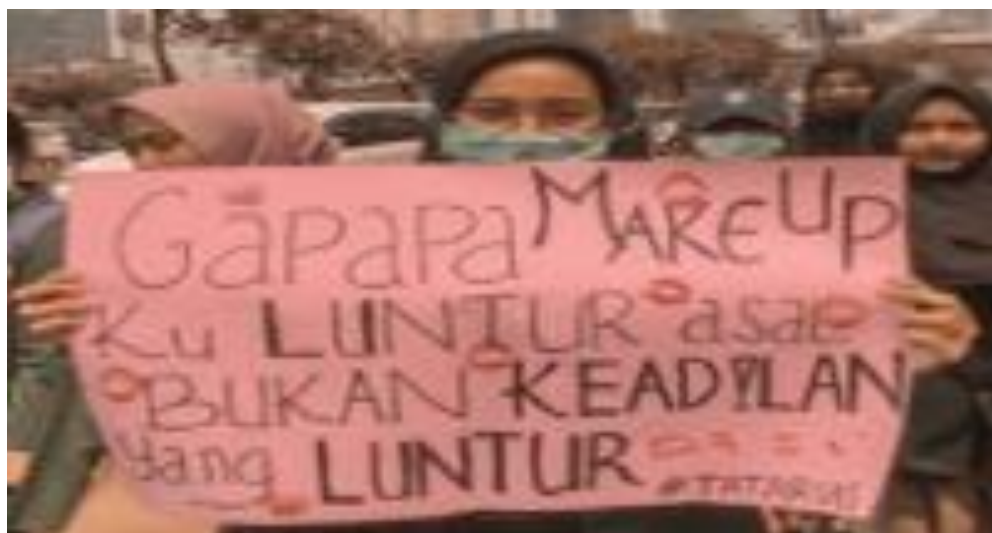 Gapapa MAKEUP
Ku LUNTUR asal
BUKAN KEADILAN
yang LUNTUR